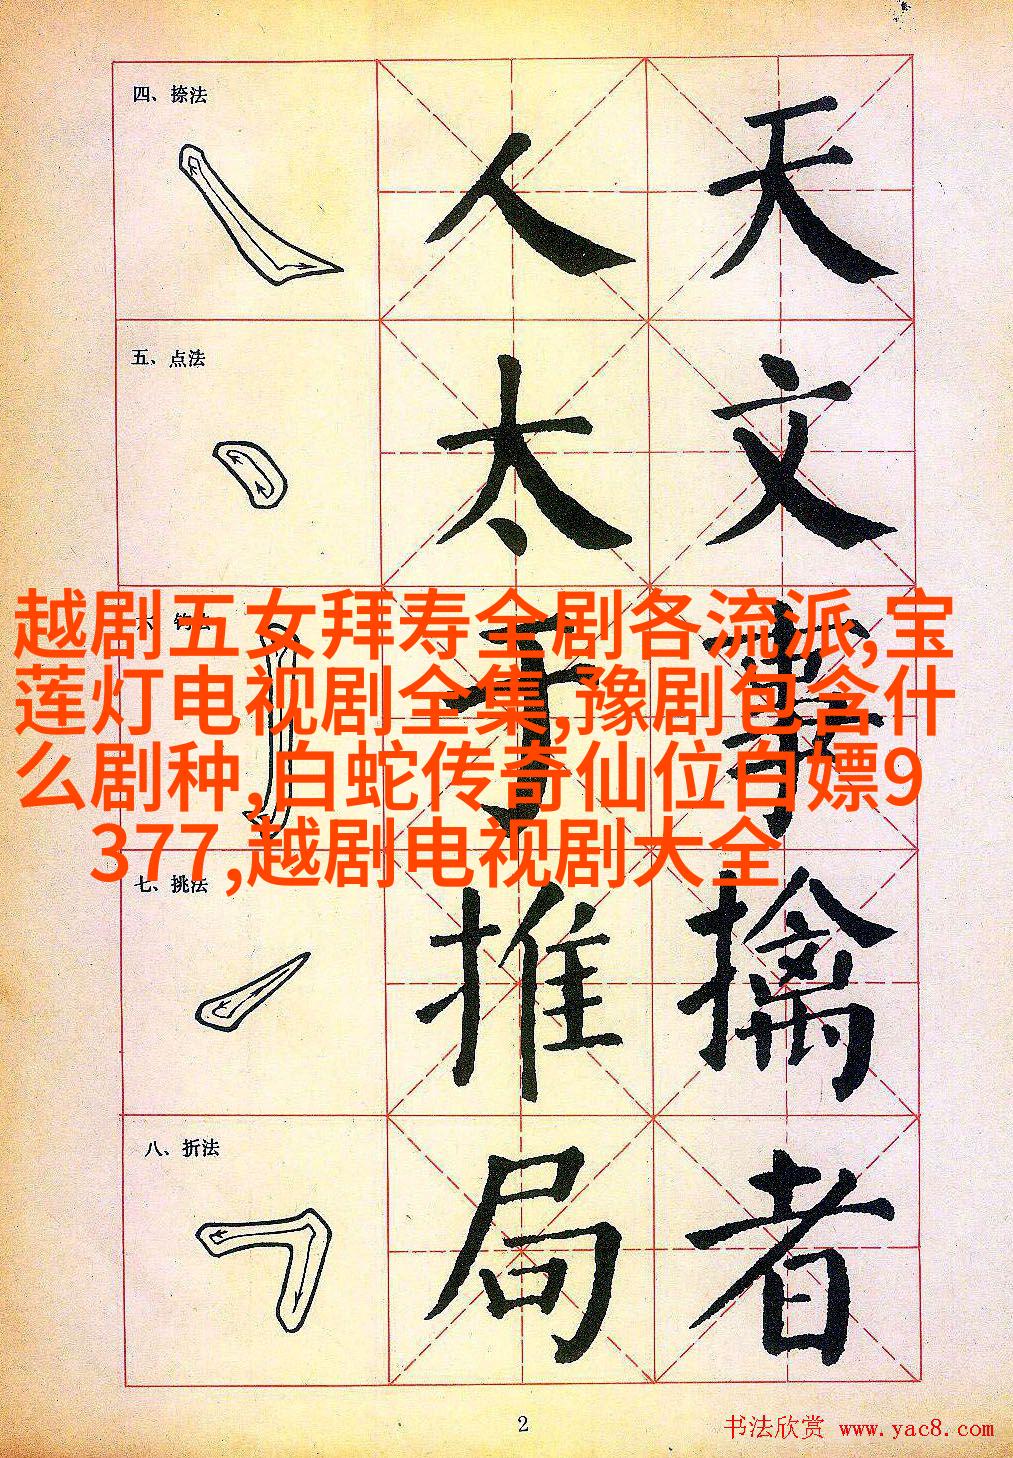 四、捺法
人 天
五、点法
太 文
越剧五女拜寿全剧各流派,宝
莲灯电视剧全集,豫剧包含什
么剧种,白蛇传奇仙位白嫖9
377,越剧电视剧大全
七、挑法
推 擒
八、折法
局 者
2
书法欣赏 www.yac8.com